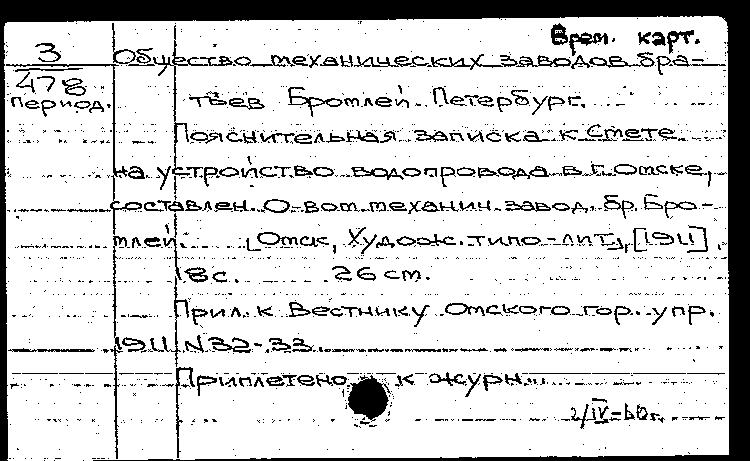 Врем. карт.
3
478
период.
Общество механических заводов бра-
тьев Бромлей. Петербург.
Пояснительная записка к смете
на устройство водопровода в г. Омске,
составлен. О-вом механич. завод. бр. Бро-
млей. [Омск, Худож. типо-лит.], [1911].
18 с. 26 см.
Прил. к Вестнику Омского гор. упр.
1911 N 32-33.
Приплетено к журн...
2/IV-60г.